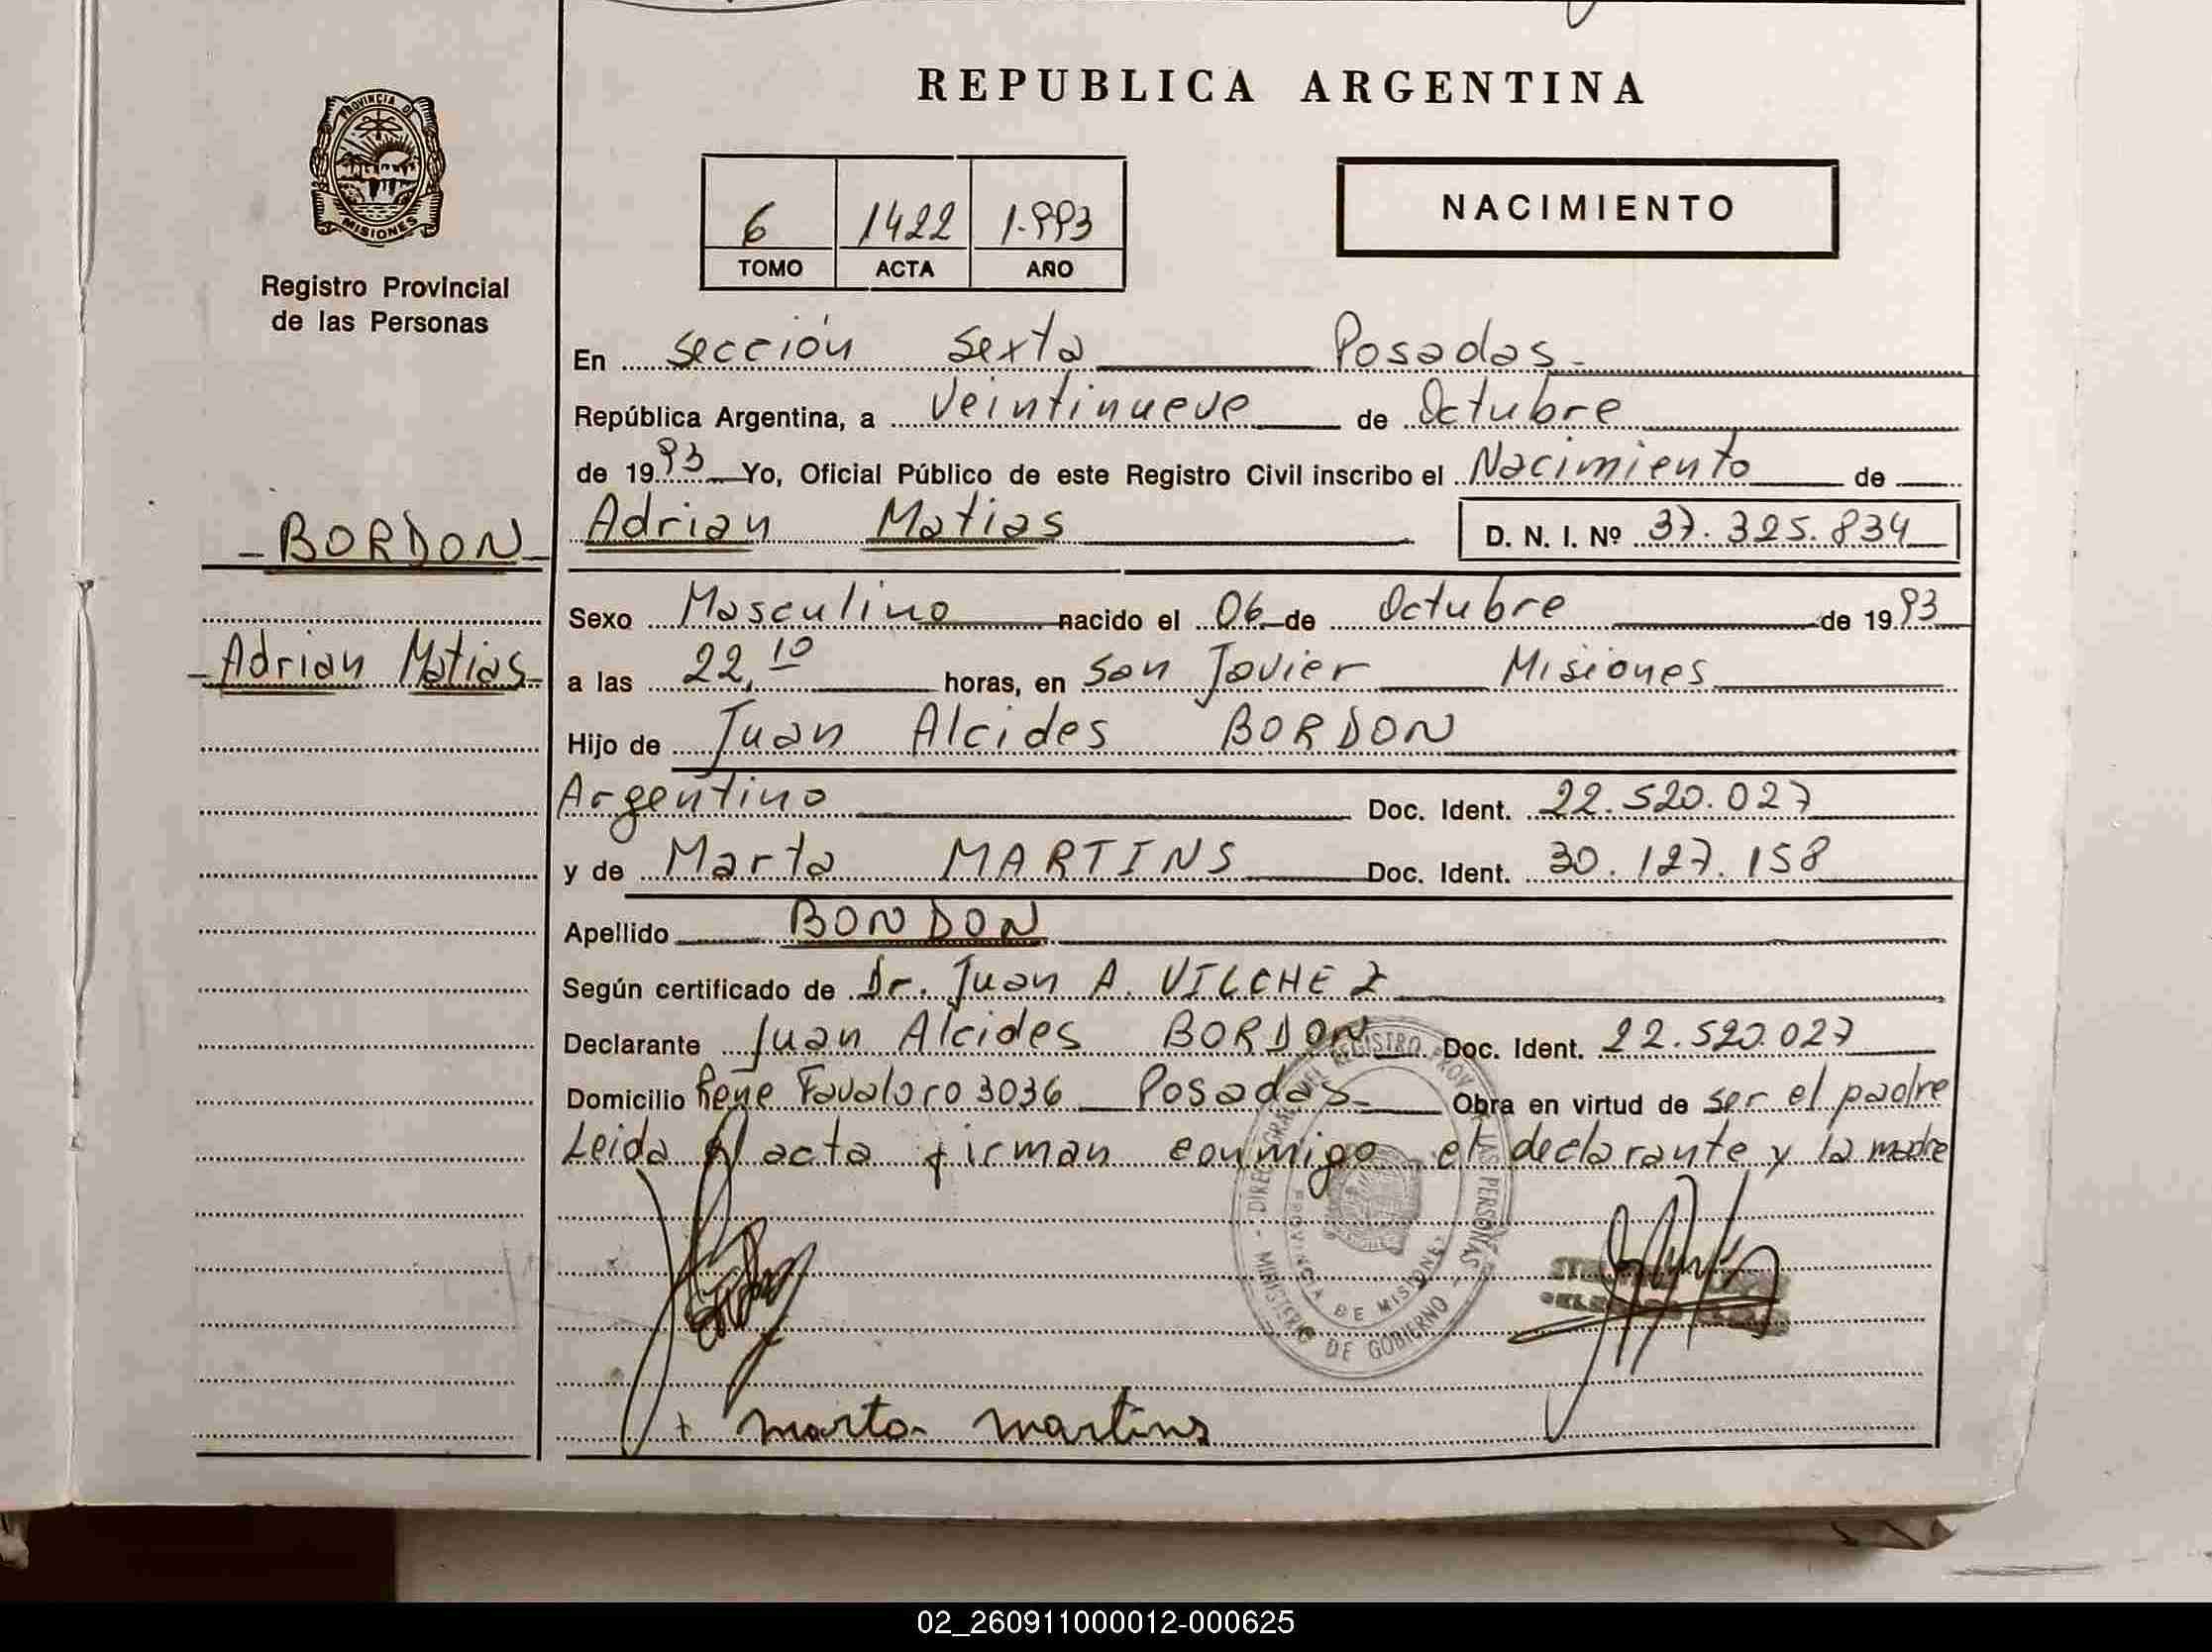 REPUBLICA ARGENTINA
PROVINCIA DE
MISIONES
Registro Provincial
de las Personas
6 1422 1.993
TOMO ACTA AÑO
NACIMIENTO
En Sección Sexta Posadas.
República Argentina, a Veintinueve de Octubre
de 1993 Yo, Oficial Público de este Registro Civil inscribo el Nacimiento de
- BORDON -
Adrian Matias D. N. I. Nº 37.325.834
Sexo Masculino nacido el 06 de Octubre de 1993
- Adrian Matias -
a las 22,10 horas, en San Javier Misiones
Hijo de Juan Alcides BORDON
Argentino Doc. Ident. 22.520.027
y de Marta MARTINS Doc. Ident. 30.127.158
Apellido BONDON
Según certificado de Dr. Juan A. VILCHEZ
Declarante Juan Alcides BORDON Doc. Ident. 22.520.027
Domicilio Rene Favaloro 3036 Posadas Obra en virtud de ser el padre
Leida el acta firman conmigo el declarante y la madre
PROVINCIA DE MISIONES
MINISTERIO DE GOBIERNO
+ marta martins
02_260911000012-000625